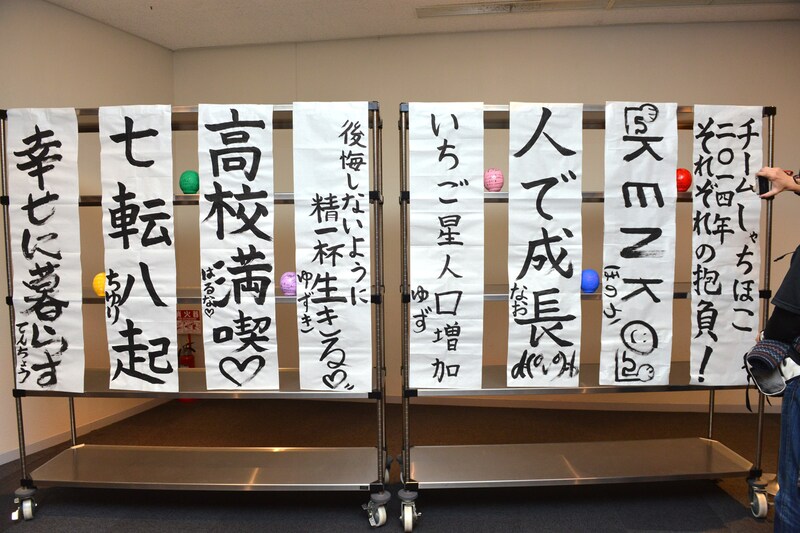 チームしゃちほこ
二〇一四年
それぞれの抱負！
KENKO
ほのか
人で成長
なお
いちご星人口増加
ゆず
後悔しないように
精一杯生きる♡
ゆずき
高校満喫♡
はるな♡
七転八起
ちゆり
幸せに暮らす
てんちょう